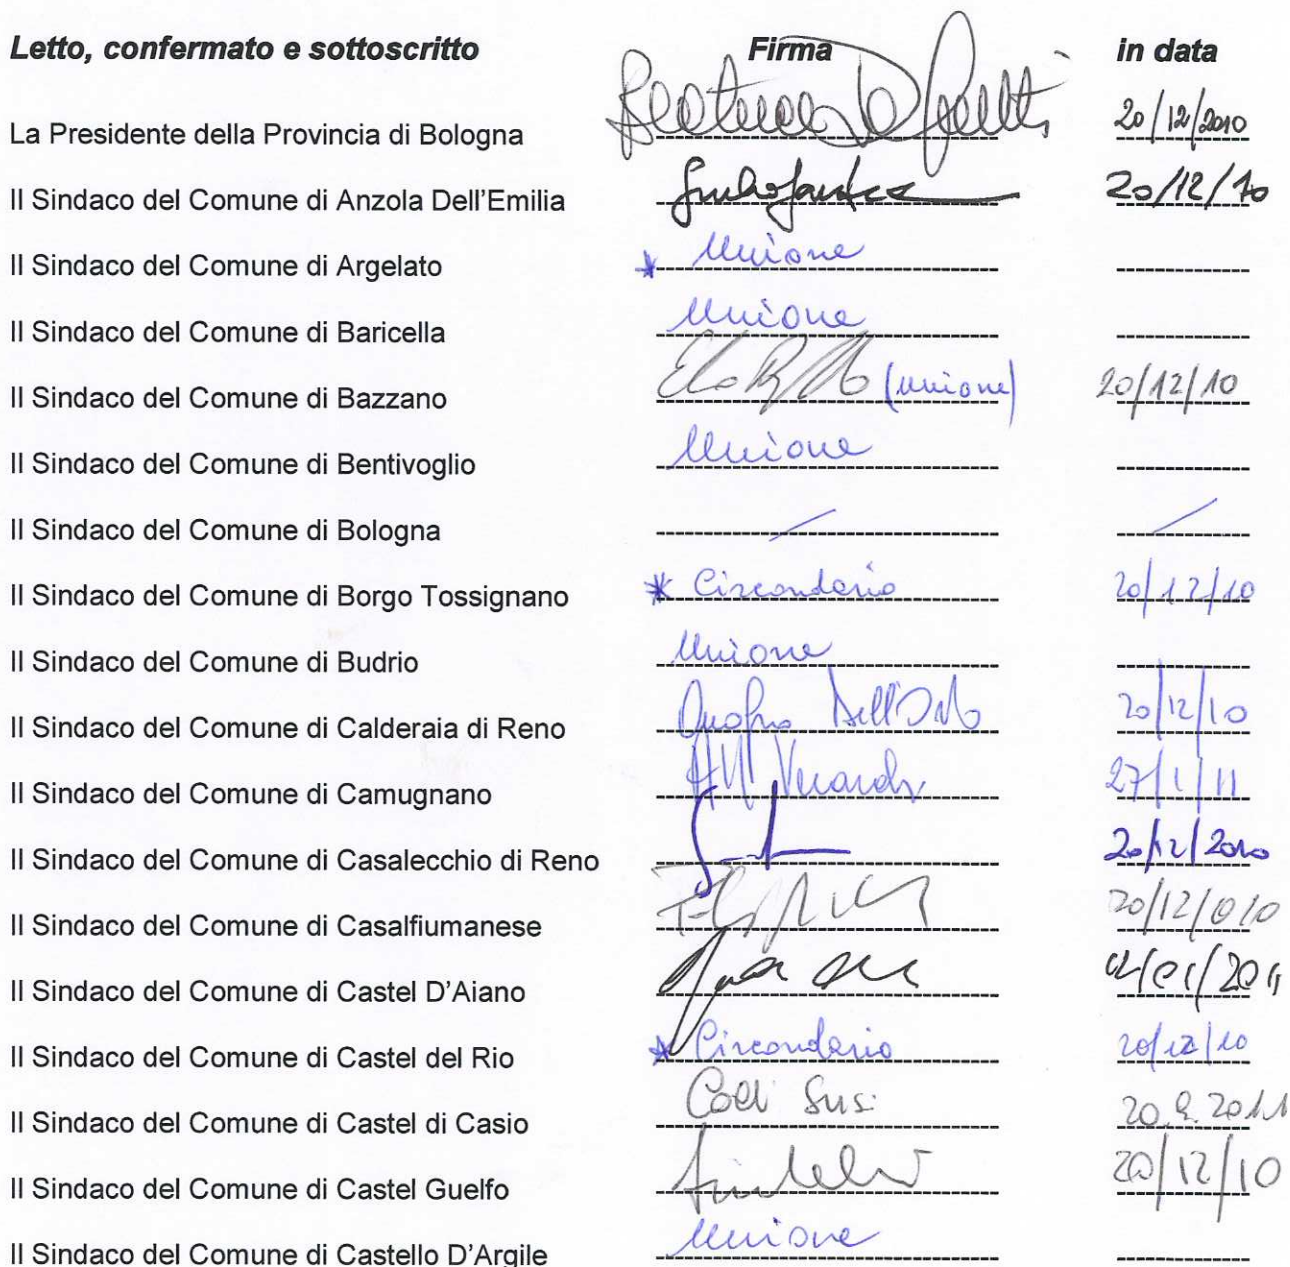 Letto, confermato e sottoscritto Firma in data
La Presidente della Provincia di Bologna 20/12/2010
Il Sindaco del Comune di Anzola Dell'Emilia 20/12/10
Il Sindaco del Comune di Argelato * Unione
Il Sindaco del Comune di Baricella Unione
Il Sindaco del Comune di Bazzano (unione) 20/12/10
Il Sindaco del Comune di Bentivoglio Unione
Il Sindaco del Comune di Bologna
Il Sindaco del Comune di Borgo Tossignano * Circondario 20/12/10
Il Sindaco del Comune di Budrio Unione
Il Sindaco del Comune di Calderaia di Reno 20/12/10
Il Sindaco del Comune di Camugnano 27/1/11
Il Sindaco del Comune di Casalecchio di Reno 20/12/2010
Il Sindaco del Comune di Casalfiumanese 20/12/010
Il Sindaco del Comune di Castel D'Aiano
Il Sindaco del Comune di Castel del Rio * Circondario 20/12/10
Il Sindaco del Comune di Castel di Casio
Il Sindaco del Comune di Castel Guelfo 20/12/10
Il Sindaco del Comune di Castello D'Argile Unione